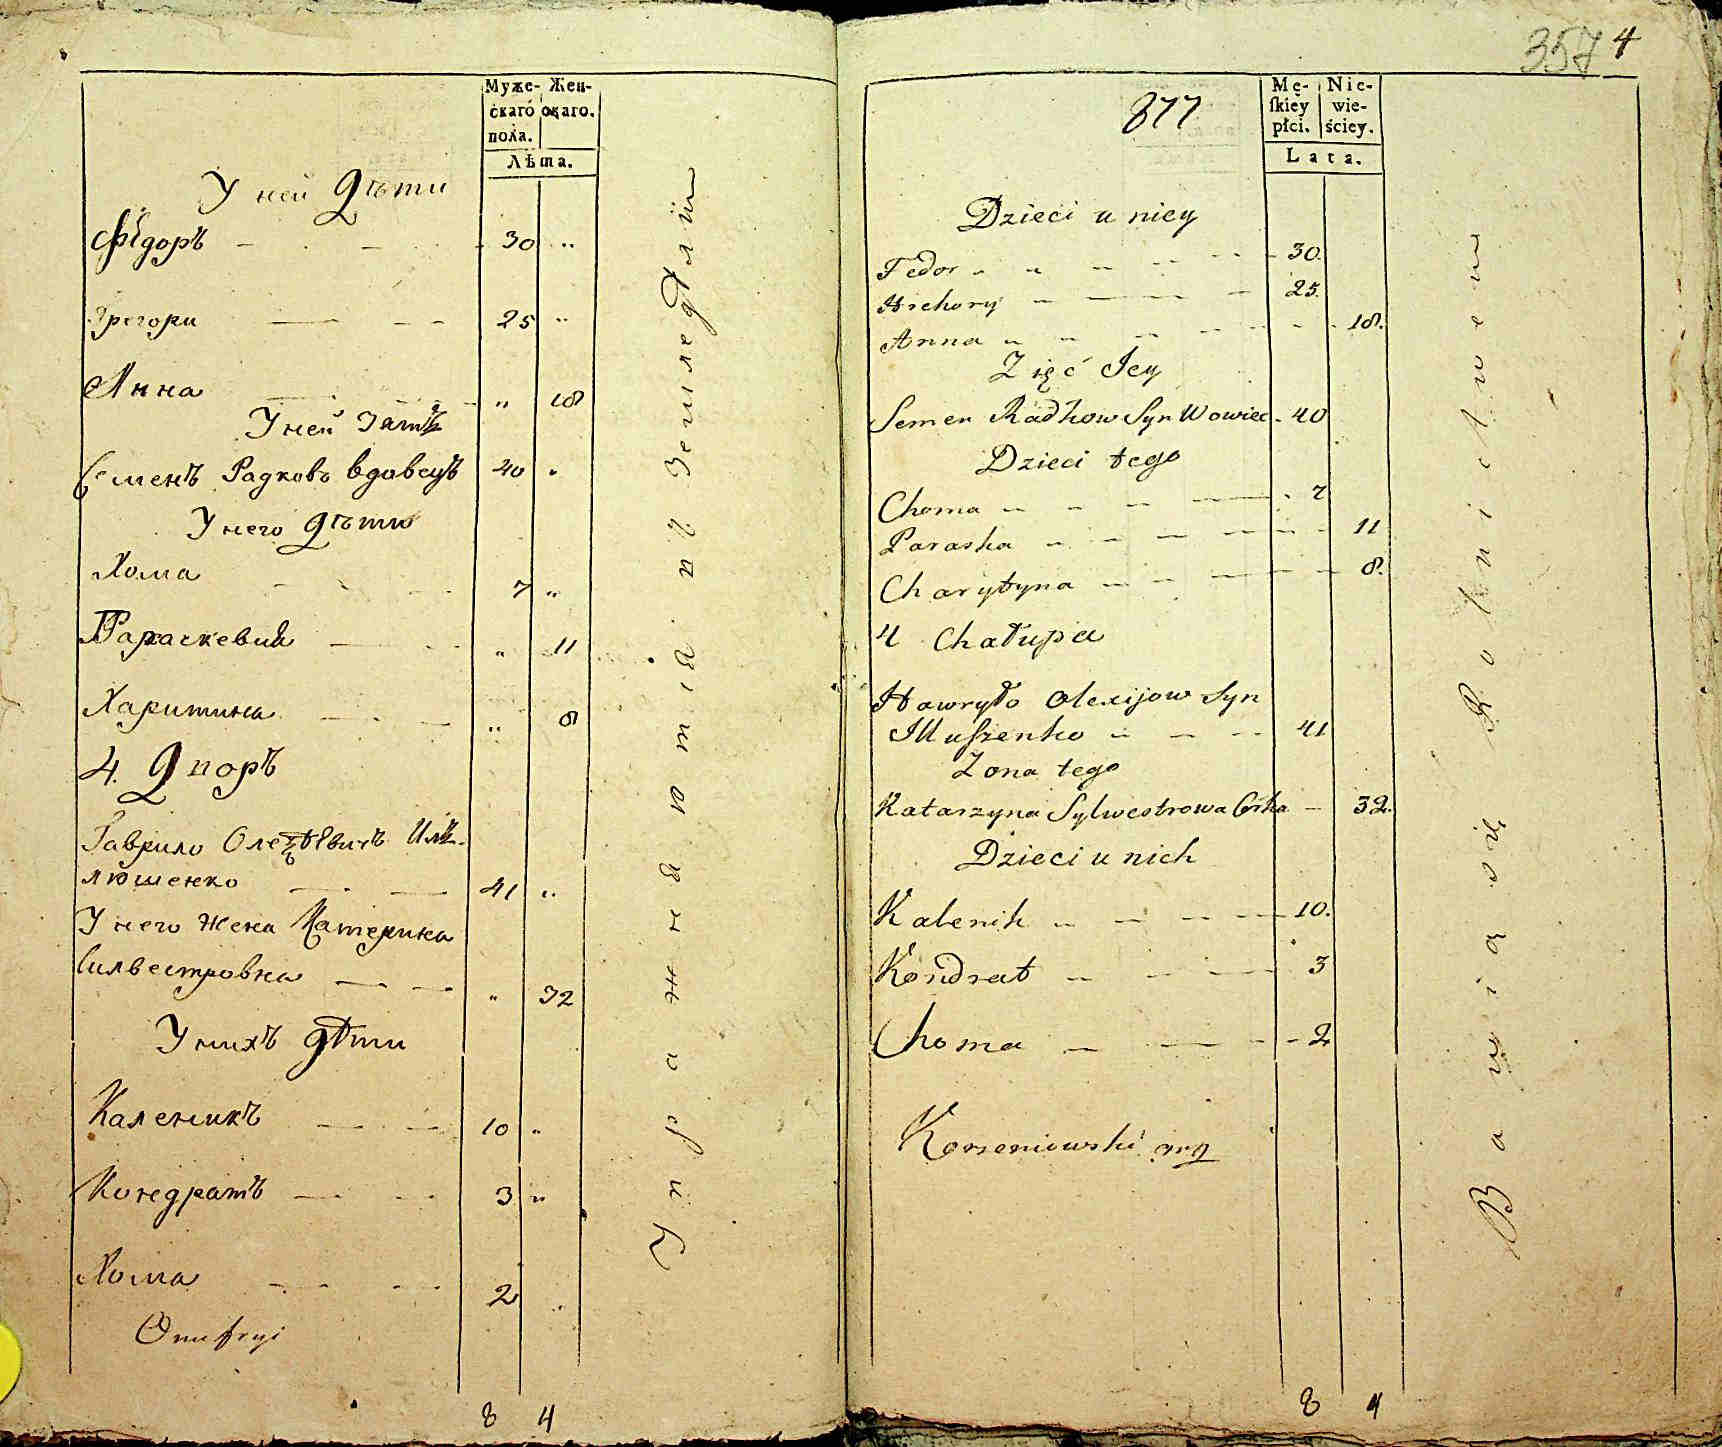 Муже- Жен-
скаго скаго.
пола.
Лѣта.
У ней Дѣти
Фёдоръ 30 "
Грегори 25 "
Анна " 18
У ней Зять
Семенъ Радковъ вдовецъ 40 "
У него дѣти
Хома 7 "
Параскевия " 11
Харитина " 8
4. Дворъ
Гаврило
люшенко 41 "
У него Жена Катерина
Силвестровна " 32
У нихъ дѣти
Каленикъ 10 "
Кондратъ 3 "
Хома 2
Onufryi
8 4
Упражняютія въ Земледѣліи
357 4
877
Mę- Nie-
skiey wie-
płci. ściey.
Lata.
Dzieci u niey
Fedor 30.
Hrehory 25.
Anna 18.
Zięć Jey
Semen Radkow Syn Wowiec 40
Dzieci tego
Choma 7
Paraska 11
Charytyna 8.
4 Chałupa
Hawryło Olexijow Syn
Illuszenko 41
Zona tego
Katarzyna Sylwestrowa Corka 32.
Dzieci u nich
Kalenik 10.
Kondrat 3
Choma 2
Korzeniowski mp
8 4
Bawią się Rolnictwem